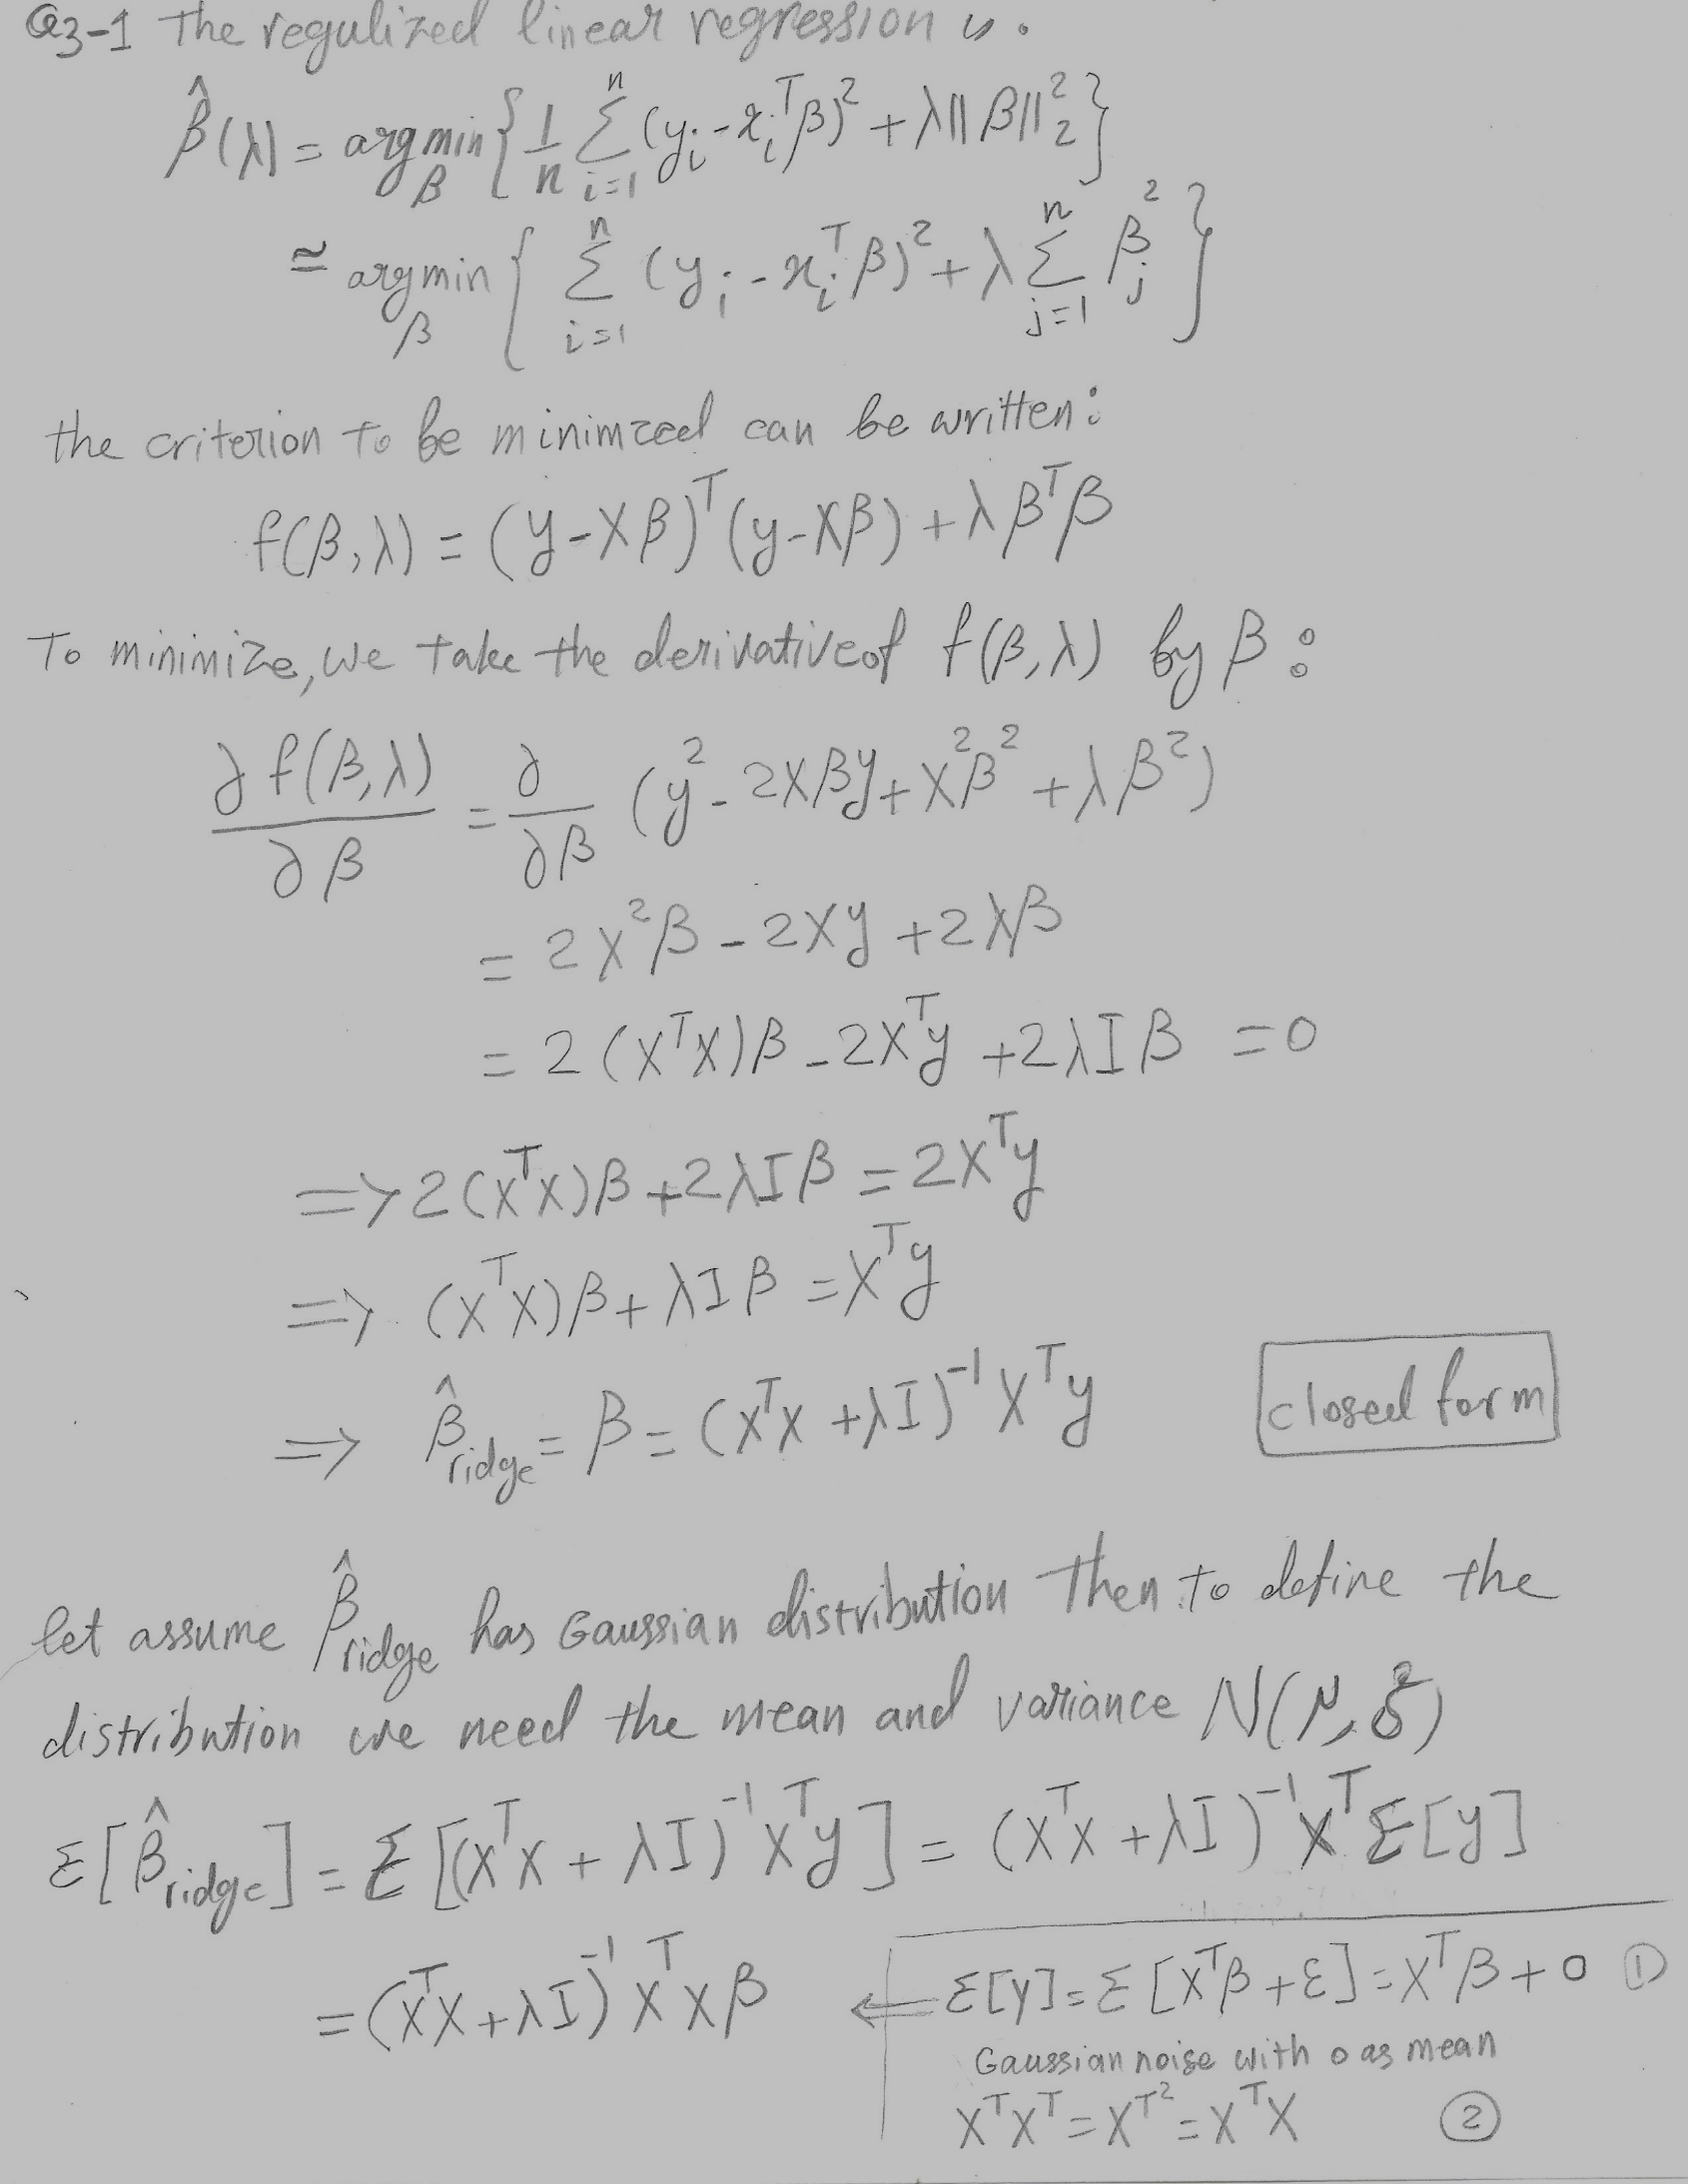 Q3-1 The regulized linear regression is:
β̂(λ) = argmin_β { 1/n Σ_{i=1}^{n} (y_i - x_i^T β)^2 + λ||β||_2^2 }
≃ argmin_β { Σ_{i=1}^{n} (y_i - x_i^T β)^2 + λ Σ_{j=1}^{n} β_j^2 }
the criterion to be minimzed can be written:
f(β,λ) = (y-Xβ)^T (y-Xβ) + λβ^Tβ
To minimize, we take the derivative of f(β,λ) by β:
∂f(β,λ)/∂β = ∂/∂β (y^2 - 2Xβy + X^2β^2 + λβ^2)
= 2X^2β - 2Xy + 2λβ
= 2(X^TX)β - 2X^Ty + 2λIβ = 0
=> 2(X^TX)β + 2λIβ = 2X^Ty
=> (X^TX)β + λIβ = X^Ty
=> β̂_ridge = β = (X^TX + λI)^{-1} X^Ty closed form
let assume β̂_ridge has Gaussian distribution then to define the
distribution we need the mean and variance N(μ, δ^2)
E[β̂_ridge] = E[(X^TX + λI)^{-1} X^Ty] = (X^TX + λI)^{-1} X^T E[y]
= (X^TX + λI)^{-1} X^TXβ ⇐ E[y] = E[X^Tβ + ε] = X^Tβ + 0 ①
Gaussian noise with 0 as mean
X^TX^T = X^{T^2} = X^TX ②